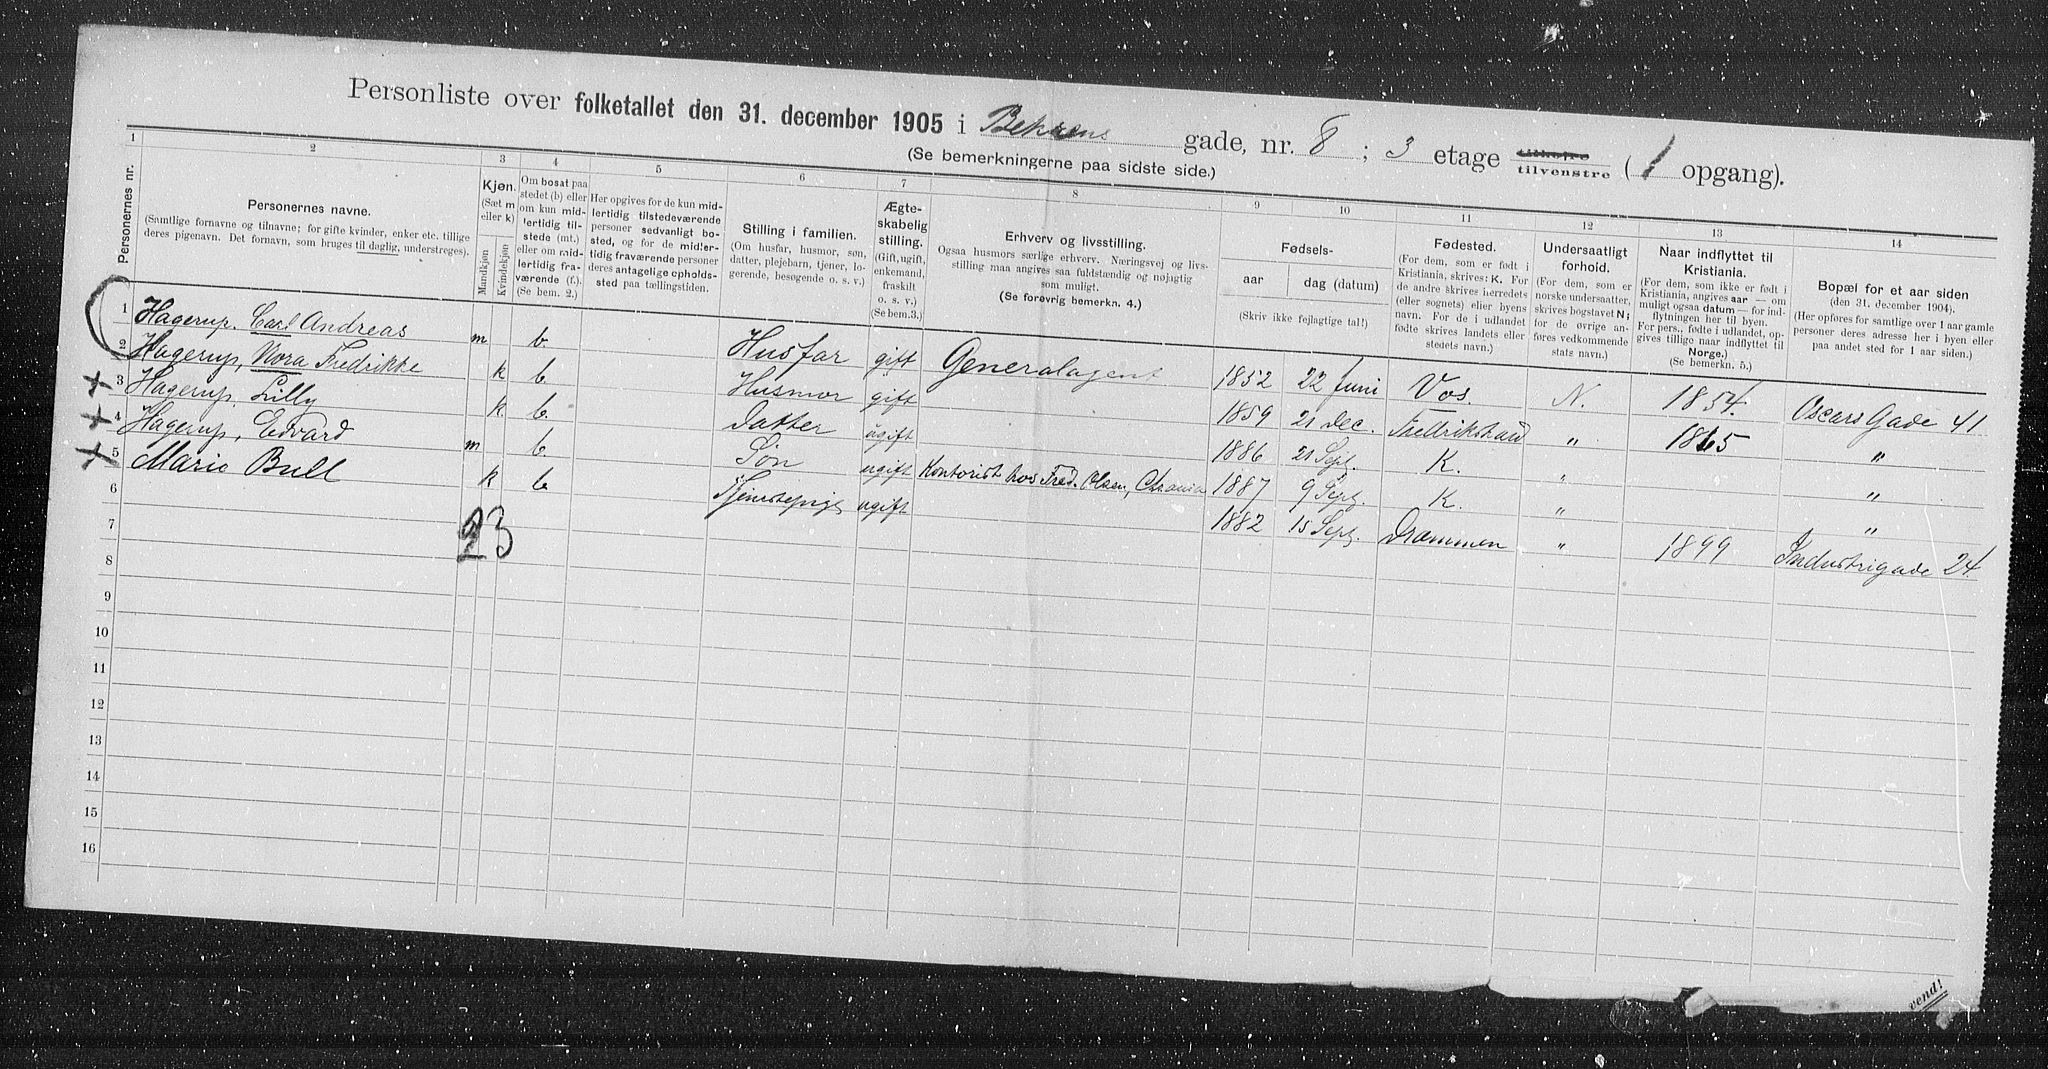 Personliste over folketallet den 31. december 1905 i Behrens gade, nr. 8 ; 3 etage tilvenstre ( 1 opgang).
(Se bemerkningerne paa sidste side.)
1 2 3 4 5 6 7 8 9 10 11 12 13 14
Personernes nr.
Personernes navne.
(Samtlige fornavne og tilnavne; for gifte kvinder, enker etc. tillige
deres pigenavn. Det fornavn, som bruges til daglig, understreges).
Kjøn.
(Sæt m
eller k)
Mandkjøn
Kvindekjøn
Om bosat paa
stedet (b) eller
om kun mid-
lertidig til-
stede (mt.)
eller om mid-
lertidig fra-
værende (f.).
(Se bem. 2.)
Her opgives for de kun mid-
lertidig tilstedeværende
personer sedvanligt bo-
sted, og for de midler-
tidig fraværende personer
deres antagelige opholds-
sted paa tællingstiden.
Stilling i familien.
(Om husfar, husmor, søn,
datter, plejebarn, tjener, lo-
gerende, besøgende o. s. v.)
Ægte-
skabelig
stilling.
(Gift, ugift,
enkemand,
fraskilt
o. s. v.)
(Se bem.3.)
Erhverv og livsstilling.
Ogsaa husmors særlige erhverv. Næringsvej og livs-
stilling maa angives saa fuldstændig og nøjagtig
som muligt.
(Se forøvrig bemerkn. 4.)
Fødsels-
aar
dag (datum)
(Skriv ikke fejlagtige tal!)
Fødested.
(For dem, som er født i
Kristiania, skrives: K. For
de andre skrives herredets
(eller sognets) eller byens
navn. For de i udlandet
fødte skrives landets eller
stedets navn.)
Undersaatligt
forhold.
(For dem, som er
norske undersaatter,
skrives bogstavet N;
for de øvrige an-
føres vedkommende
stats navn.)
Naar indflyttet til
Kristiania.
(For dem, som ikke er født i
Kristiania, angives aar — om
muligt ogsaa datum — for ind-
flytningen her til byen.
For pers., fødte i udlandet, op-
gives tillige naar indflyttet til
Norge.)
(Se bemerkn. 5.)
Bopæl for et aar siden
(den 31. december 1904.)
(Her opføres for samtlige over 1 aar gamle
personer deres adresse her i byen eller
paa andet sted for 1 aar siden.)
1 Hagerup, Carl Andreas m b. Husfar gift Generalagent 1852 22 Juni Vos. N. 1854. Oscars Gade 41
2 Hagerup, Nora Fredrikke k b. Husmor gift 1859 21 Dec. Fredrikstad " 1865 "
3 Hagerup, Lilly k b. Datter ugift 1886 21 Sept. K. " "
4 Hagerup, Edvard m b. Søn ugift Kontorist hos Fred. Olsen, Chrania 1887 9 Sept. K. " "
5 Marie Bull k b Tjenestepige ugift 1882 15 Sept. Drammen " 1899 Industrigade 24.
6
7
8
9
10
11
12
13
14
15
16
23
vend!